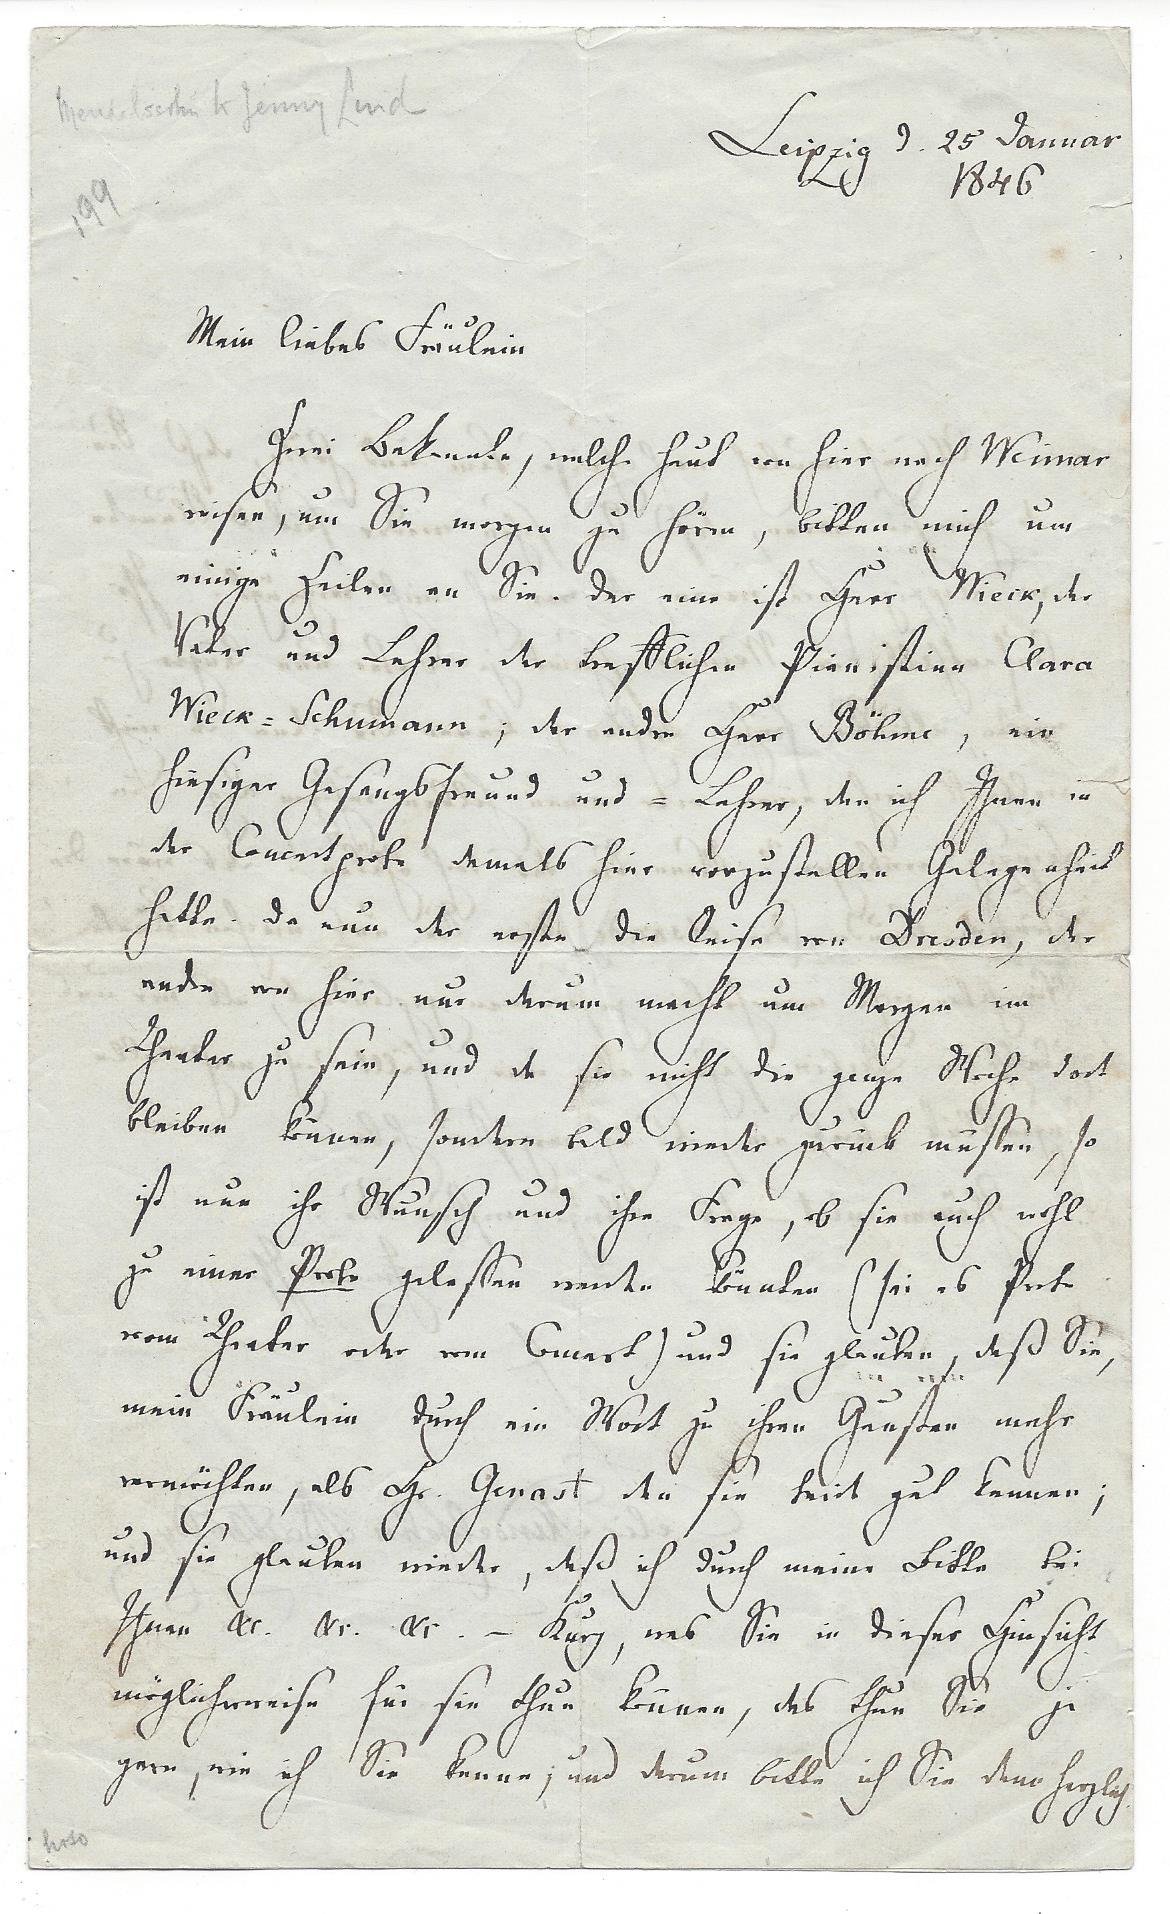 Mendelssohn to Jenny Lind
199
Leipzig d. 25 Januar
1846
Mein liebes Fräulein
Zwei Bekannte, welche heut von hier nach Weimar
reisen, um Sie morgen zu hören, bitten mich um
einige Zeilen an Sie. Der eine ist Herr Wieck, der
Vater und Lehrer der trefflichen Pianistinn Clara
Wieck=Schumann; der andre Herr Böhme, ein
hiesiger Gesangsfreund und =Lehrer, den ich Ihnen in
der Concertprobe damals hier vorzustellen Gelegenheit
hatte. Da nun der erste die Reise von Dresden, der
andre von hier nur darum macht um Morgen im
Theater zu sein, und da sie nicht die ganze Woche dort
bleiben können, sondern bald wieder zurück müssen, so
ist nun ihr Wunsch und ihre Frage, ob sie auch wohl
zu einer Probe gelassen werden könnten (sei es Probe
vom Theater oder vom Concert) und sie glauben, daß Sie,
mein Fräulein durch ein Wort zu ihren Gunsten mehr
vermöchten, als Hr. Genast den sie beide gut kennen;
und sie glauben wieder, daß ich durch meine Bitte bei
Ihnen &c. &c. &c. – Kurz, was Sie in dieser Hinsicht
möglicherweise für sie thun können, das thun Sie ja
gern, wie ich Sie kenne; und darum bitte ich Sie denn herzlich.